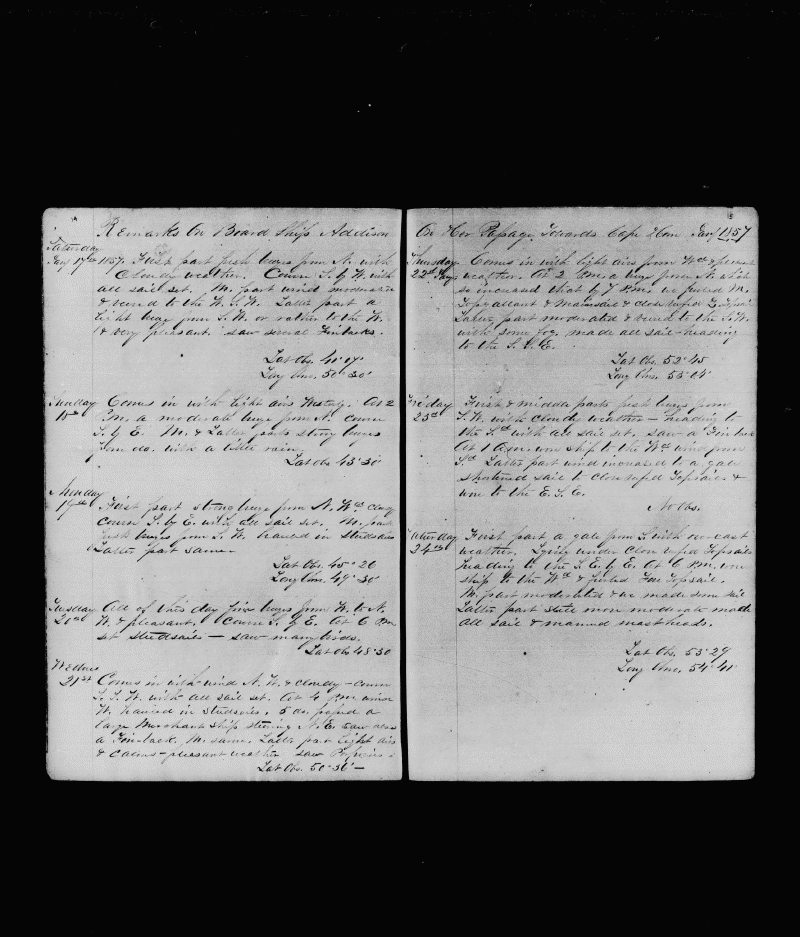 Remarks On Board Ship Addison
Saturday
Jany 17th 1857. First part fresh breeze from N. with
Cloudy weather. Course S. by W. with
all sail set. M. part wind moderate
& veered to the W. S. W. Latter part a
light breeze from S. W. or rather to the W.
& very pleasant. saw several Finbacks.
Lat Obs. 41°17'
Long Chro. 50°30'
Sunday
18th
Comes in with light airs Westerly. At 2
P.M. a moderate breeze from N. course
S. by E. M. & Latter parts strong breezes
from do. with a little rain.
Lat Obs 43°30'
Monday
19th
First part strong breeze from N. Wd cloudy
course S. by E. with all sail set. M. part
fresh breezes from S. W. hauled in studsails
Latter part same.
Lat Obs. 45°26
Long Chro. 49°30'
Tuesday
20th
All of this day fine breezes from W. to N.
W. & pleasant. Course S. by E. At 6 P.M.
set studsails — saw many birds.
Lat Obs 48°30
Wednes
21st
Comes in with wind N. W. & cloudy — course
S. S. W. with all sail set. At 4 P.M. wind
W. hauled in studsails. 5 do. passed a
large Merchant ship steering N. E. saw also
a Finback. M. same. Latter part light airs
& calms — pleasant weather saw Porpoises
Lat Obs. 50°36' —
On Her Passage Towards Cape Horn Jany 1857
Thursday
22nd Jany
Comes in with light airs from Wd & pleasant
weather. At 2 P.M. a breeze from N. which
so increased that by 7 P.M. we furled M.
Topgallant & Mainsail & close reefed
Latter part moderated & veered to the S. W.
with some fog. made all sail — heading
to the S. S. E.
Lat Obs. 52°45
Long Chro. 53°04'
Friday
23d
First & middle parts fresh breeze from
S. W. with cloudy weather — heading to
the Sd with all sail set. saw a Finback
At 1 A.M. wore ship to the Wd wind from
Sd. Latter part wind increased to a gale
shortened sail to close reefed Topsails &
wore to the E. S. E.
No Obs.
Saturday
24th
First part a gale from S. with overcast
weather. Lying under close reefed Topsails
heading to the S. E. by E. At 6 P.M. wore
ship to the Wd & furled Fore Topsail.
M. part moderated & we made some sail
Latter part still more moderate made
all sail & manned mastheads.
Lat Obs. 53°29
Long Chro. 54°41'